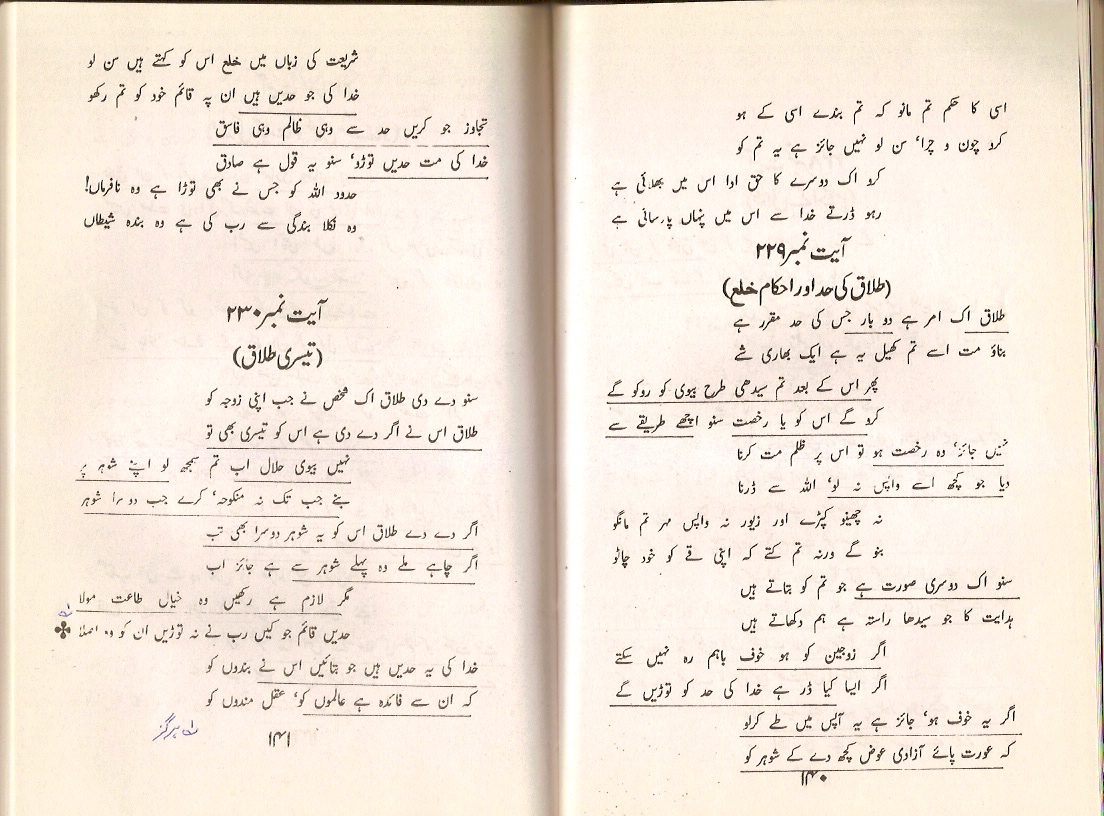 اسی کا حکم تم مانو کہ تم بندے اسی کے ہو
کرو چون و چرا، سن لو نہیں جائز ہے یہ تم کو
کرو اک دوسرے کا حق ادا اس میں بھلائی ہے
رہو ڈرتے خدا سے اس میں پنہاں پارسائی ہے
آیت نمبر ۲۲۹
(طلاق کی حد اور احکام خلع)
طلاق اک امر ہے دو بار جس کی حد مقرر ہے
بناؤ مت اسے تم کھیل یہ ہے ایک بھاری شے
پھر اس کے بعد تم سیدھی طرح بیوی کو روکو گے
کرو گے اس کو یا رخصت سنو اچھے طریقے سے
نہیں جائز، وہ رخصت ہو تو اس پر ظلم مت کرنا
دیا جو کچھ اسے واپس نہ لو، اللہ سے ڈرنا
نہ چھینو کپڑے اور زیور نہ واپس مہر تم مانگو
بنو گے ورنہ تم کتے کہ اپنی قے کو خود چاٹو
سنو اک دوسری صورت ہے جو تم کو بتاتے ہیں
ہدایت کا جو سیدھا راستہ ہے ہم دکھاتے ہیں
اگر زوجین کو ہو خوف باہم رہ نہیں سکتے
اگر ایسا کیا ڈر ہے خدا کی حد کو توڑیں گے
اگر یہ خوف ہو، جائز ہے یہ آپس میں طے کرلو
کہ عورت پائے آزادی عوض کچھ دے کے شوہر کو
۱۴۰
شریعت کی زباں میں خلع اس کو کہتے ہیں سن لو
خدا کی جو حدیں ہیں ان پہ قائم خود کو تم رکھو
تجاوز جو کریں حد سے وہی ظالم وہی فاسق
خدا کی مت حدیں توڑو، سنو یہ قول ہے صادق
حدود اللہ کو جس نے بھی توڑا ہے وہ نافرماں!
وہ نکلا بندگی سے رب کی ہے وہ بندہ شیطاں
آیت نمبر ۲۳۰
(تیسری طلاق)
سنو دے دی طلاق اک شخص نے جب اپنی زوجہ کو
طلاق اس نے اگر دے دی ہے اس کو تیسری بھی تو
نہیں بیوی حلال اب تم سمجھ لو اپنے شوہر پر
بنے جب تک نہ منکوحہ، کرے جب دوسرا شوہر
اگر دے دے طلاق اس کو یہ شوہر دوسرا بھی تب
اگر چاہے ملے وہ پہلے شوہر سے ہے جائز اب
مگر لازم ہے رکھیں وہ خیال طاعت مولا
حدیں قائم جو کیں رب نے نہ توڑیں ان کو وہ اصلا
خدا کی یہ حدیں ہیں جو بتائیں اس نے بندوں کو
کہ ان سے فائدہ ہے عالموں کو، عقل مندوں کو
ہرگز
۱۴۱